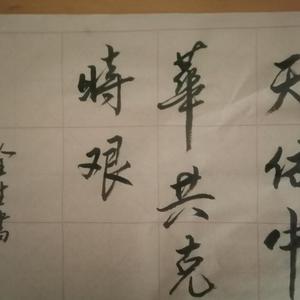 天佑中
華共克
時艰
金生書